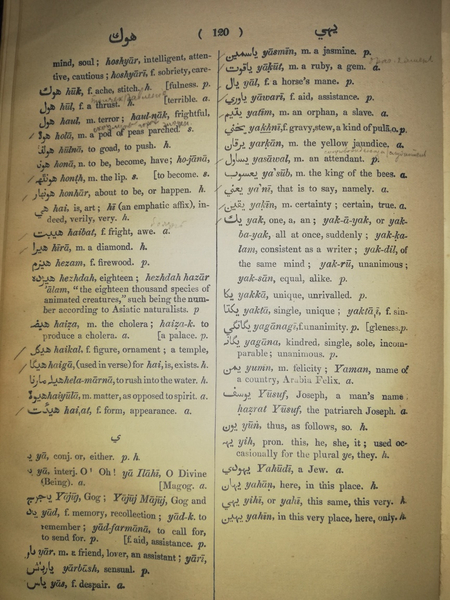 هوك ( 120 ) يهي
mind, soul; hoshyār, intelligent, atten-
tive, cautious; hoshyārī, f. sobriety, care-
هوك hūk, f. ache, stitch. h. [fulness. p.
هول hūl, f. a thrust. h. [terrible. a.
هول haul, m. terror; haul-nāk, frightful,
هولا holā, m. a pod of peas parched. s.
هولنا hūlnā, to goad, to push. h.
هونا honā, n. to be, become, have; ho-jānā,
هونٹهه honṭh, m. the lip. s. [to become. s.
هونهار honhār, about to be, or happen. h.
هي hai, is, art; hī (an emphatic affix), in-
deed, verily, very. h.
هيبت haibat, f. fright, awe. a.
هيرا hīrā, m. a diamond. h.
هيزم hezam, f. firewood. p.
هيژده hezhdah, eighteen; hezhdah hazār
'ālam, "the eighteen thousand species of
animated creatures," such being the num-
ber according to Asiatic naturalists. p
هيضه haiza, m. the cholera; haiza-k. to
produce a cholera. a. [a palace. p.
هيكل haikal, f. figure, ornament; a temple,
هيگا haigā, (used in verse) for hai, is, exists. h.
هيلمارنا hela-mārnā, to rush into the water. h.
هيولا haiyūlā, m. matter, as opposed to spirit. a.
هيئت hai,at, f. form, appearance. a.
ي
يا yā, conj. or, either. p. h.
يا yā, interj. O! Oh! yā Ilāhī, O Divine
(Being). a. [Magog. a.
ياجوج Yōjūj, Gog; Yōjūj Mājūj, Gog and
ياد yād, f. memory, recollection; yād-k. to
remember; yād-farmānā, to call for,
to send for. p. [f. aid, assistance. p.
يار yār, m. a friend, lover, an assistant; yārī,
يارباش yārbāsh, sensual. p.
ياس yās, f. despair. a.
ياسمين yāsmīn, m. a jasmine. p.
ياقوت yāḳūt, m. a ruby, a gem. a.
يال yāl, f. a horse's mane. p.
ياوري yāwarī, f. aid, assistance. p.
يتيم yatīm, m. an orphan, a slave. a.
يخني yaḵhnī, f. gravy, stew, a kind of pulā,o. p.
يرقان yarḳān, m. the yellow jaundice. a.
يساول yasāwal, m. an attendant. p.
يعسوب ya'sūb, m. the king of the bees. a
يعني ya'nī, that is to say, namely. a.
يقين yaḳīn, m. certainty; certain, true. a.
يك yak, one, a, an; yak-ā-yak, or yak-
ba-yak, all at once, suddenly; yak-ḳa-
lam, consistent as a writer; yak-dil, of
the same mind; yak-rū, unanimous;
yak-sān, equal, alike. p.
يكا yakkā, unique, unrivalled. p.
يكتا yaktā, single, unique; yaktā,ī, f. sin-
يگانگي yagānagī, f. unanimity. p. [gleness. p.
يگانه yagāna, kindred, single, sole, incom-
parable; unanimous. p.
يمن yumn, m. felicity; Yaman, name of
a country, Arabia Felix. a.
يوسف Yūsuf, Joseph, a man's name;
ḥaẓrat Yūsuf, the patriarch Joseph. a.
يون yūṅ, thus, as follows, so. h.
يهه yih, pron. this, he, she, it; used oc-
casionally for the plural ye, they. h.
يهودي Yahūdī, a Jew. a.
يهان yahāṅ, here, in this place. h.
يهي yihī, or yahī, this same, this very. h.
يهين yahīṅ, in this very place, here, only. h.